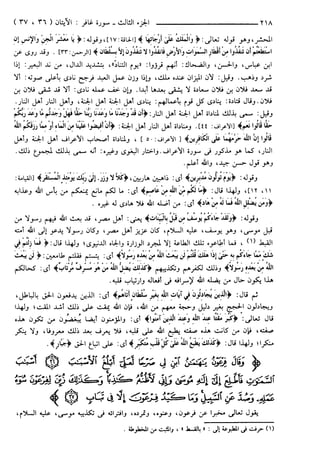 ٢١٨ ــــــــــــــ الجزء الثالث ـ سورة غافر : الآيتان ( ٣٦ ، ٣٧ )
المحشر، وهو قوله تعالى: ﴿ وَالْمَلَكُ عَلَىٰ أَرْجَائِهَا ﴾ [الحاقة: ١٧]، وقوله: ﴿ يَا مَعْشَرَ الْجِنِّ وَالْإِنسِ إِنِ
اسْتَطَعْتُمْ أَن تَنفُذُوا مِنْ أَقْطَارِ السَّمَوَاتِ وَالْأَرْضِ فَانفُذُوا لَا تَنفُذُونَ إِلَّا بِسُلْطَانٍ ﴾ [الرحمن: ٣٣]. وقد روى عن
ابن عباس، والحسن، والضحاك: أنهم قرؤوا: «يوم التنادّ»، بتشديد الدال، من ند البعير: إذا
شرد وذهب. وقيل: لأن الميزان عنده ملك، وإذا وزن عمل العبد فرجح نادى بأعلى صوته: ألا
قد سعد فلان بن فلان سعادة لا يشقى بعدها أبدا. وإن خف عمله نادى: ألا قد شقى فلان بن
فلان. وقال قتادة: ينادى كل قوم بأعمالهم: ينادى أهل الجنة أهل الجنة، وأهل النار أهل النار.
وقيل: سمى بذلك لمناداة أهل الجنة أهل النار: ﴿ أَن قَدْ وَجَدْنَا مَا وَعَدَنَا رَبُّنَا حَقًّا فَهَلْ وَجَدتُّم مَّا وَعَدَ رَبُّكُمْ
حَقًّا قَالُوا نَعَمْ ﴾ [الأعراف: ٤٤]. ومناداة أهل النار أهل الجنة: ﴿ أَنْ أَفِيضُوا عَلَيْنَا مِنَ الْمَاءِ أَوْ مِمَّا رَزَقَكُمُ اللَّهُ
قَالُوا إِنَّ اللَّهَ حَرَّمَهُمَا عَلَى الْكَافِرِينَ ﴾ [الأعراف: ٥٠]، ولمناداة أصحاب الأعراف أهل الجنة وأهل
النار، كما هو مذكور فى سورة الأعراف. واختار البغوى وغيره: أنه سمى بذلك لمجموع ذلك.
وهو قول حسن جيد، والله أعلم.
وقوله: ﴿ يَوْمَ تُوَلُّونَ مُدْبِرِينَ ﴾ أى: ذاهبين هاربين، ﴿ كَلَّا لَا وَزَرَ . إِلَىٰ رَبِّكَ يَوْمَئِذٍ الْمُسْتَقَرُّ ﴾ [القيامة:
١١، ١٢]، ولهذا قال: ﴿ مَا لَكُم مِّنَ اللَّهِ مِنْ عَاصِمٍ ﴾ أى: ما لكم مانع يمنعكم من بأس الله وعذابه
﴿ وَمَن يُضْلِلِ اللَّهُ فَمَا لَهُ مِنْ هَادٍ ﴾ أى: من أضله الله فلا هادى له غيره.
وقوله: ﴿ وَلَقَدْ جَاءَكُمْ يُوسُفُ مِن قَبْلُ بِالْبَيِّنَاتِ ﴾ يعنى: أهل مصر، قد بعث الله فيهم رسولا من
قبل موسى، وهو يوسف، عليه السلام، كان عزيز أهل مصر، وكان رسولا يدعو إلى الله أمته
القبط (١) ، فما أطاعوه تلك الطاعة إلا لمجرد الوزارة والجاه الدنيوى؛ ولهذا قال: ﴿ فَمَا زِلْتُمْ فِي
شَكٍّ مِّمَّا جَاءَكُم بِهِ حَتَّىٰ إِذَا هَلَكَ قُلْتُمْ لَن يَبْعَثَ اللَّهُ مِن بَعْدِهِ رَسُولًا ﴾ أى: يئستم فقلتم طامعين: ﴿ لَن يَبْعَثَ
اللَّهُ مِن بَعْدِهِ رَسُولًا ﴾ وذلك لكفرهم وتكذيبهم ﴿ كَذَٰلِكَ يُضِلُّ اللَّهُ مَنْ هُوَ مُسْرِفٌ مُّرْتَابٌ ﴾ أى: كحالكم
هذا يكون حال من يضله الله لإسرافه فى أفعاله وارتياب قلبه.
ثم قال: ﴿ الَّذِينَ يُجَادِلُونَ فِي آيَاتِ اللَّهِ بِغَيْرِ سُلْطَانٍ أَتَاهُمْ ﴾ أى: الذين يدفعون الحق بالباطل،
ويجادلون الحجج بغير دليل وحجة معهم من الله، فإن الله يمقت على ذلك أشد المقت؛ ولهذا
قال تعالى: ﴿ كَبُرَ مَقْتًا عِندَ اللَّهِ وَعِندَ الَّذِينَ آمَنُوا ﴾ أى: والمؤمنون أيضا يبغضون من تكون هذه
صفته، فإن من كانت هذه صفته يطبع الله على قلبه، فلا يعرف بعد ذلك معروفا، ولا ينكر
منكرا؛ ولهذا قال: ﴿ كَذَٰلِكَ يَطْبَعُ اللَّهُ عَلَىٰ كُلِّ قَلْبِ مُتَكَبِّرٍ ﴾ أى: على اتباع الحق ﴿ جَبَّارٍ ﴾.
﴿ وَقَالَ فِرْعَوْنُ يَا هَامَانُ ابْنِ لِي صَرْحًا لَّعَلِّي أَبْلُغُ الْأَسْبَابَ ۝ أَسْبَابَ
السَّمَاوَاتِ فَأَطَّلِعَ إِلَىٰ إِلَٰهِ مُوسَىٰ وَإِنِّي لَأَظُنُّهُ كَاذِبًا وَكَذَٰلِكَ زُيِّنَ لِفِرْعَوْنَ سُوءُ
عَمَلِهِ وَصُدَّ عَنِ السَّبِيلِ وَمَا كَيْدُ فِرْعَوْنَ إِلَّا فِي تَبَابٍ ۝ ﴾
يقول تعالى مخبرا عن فرعون، وعتوه، وتمرده، وافترائه فى تكذيبه موسى، عليه السلام،
(١) حرفت فى المطبوعة إلى : « بالقسط » ، والمثبت من المخطوطة .